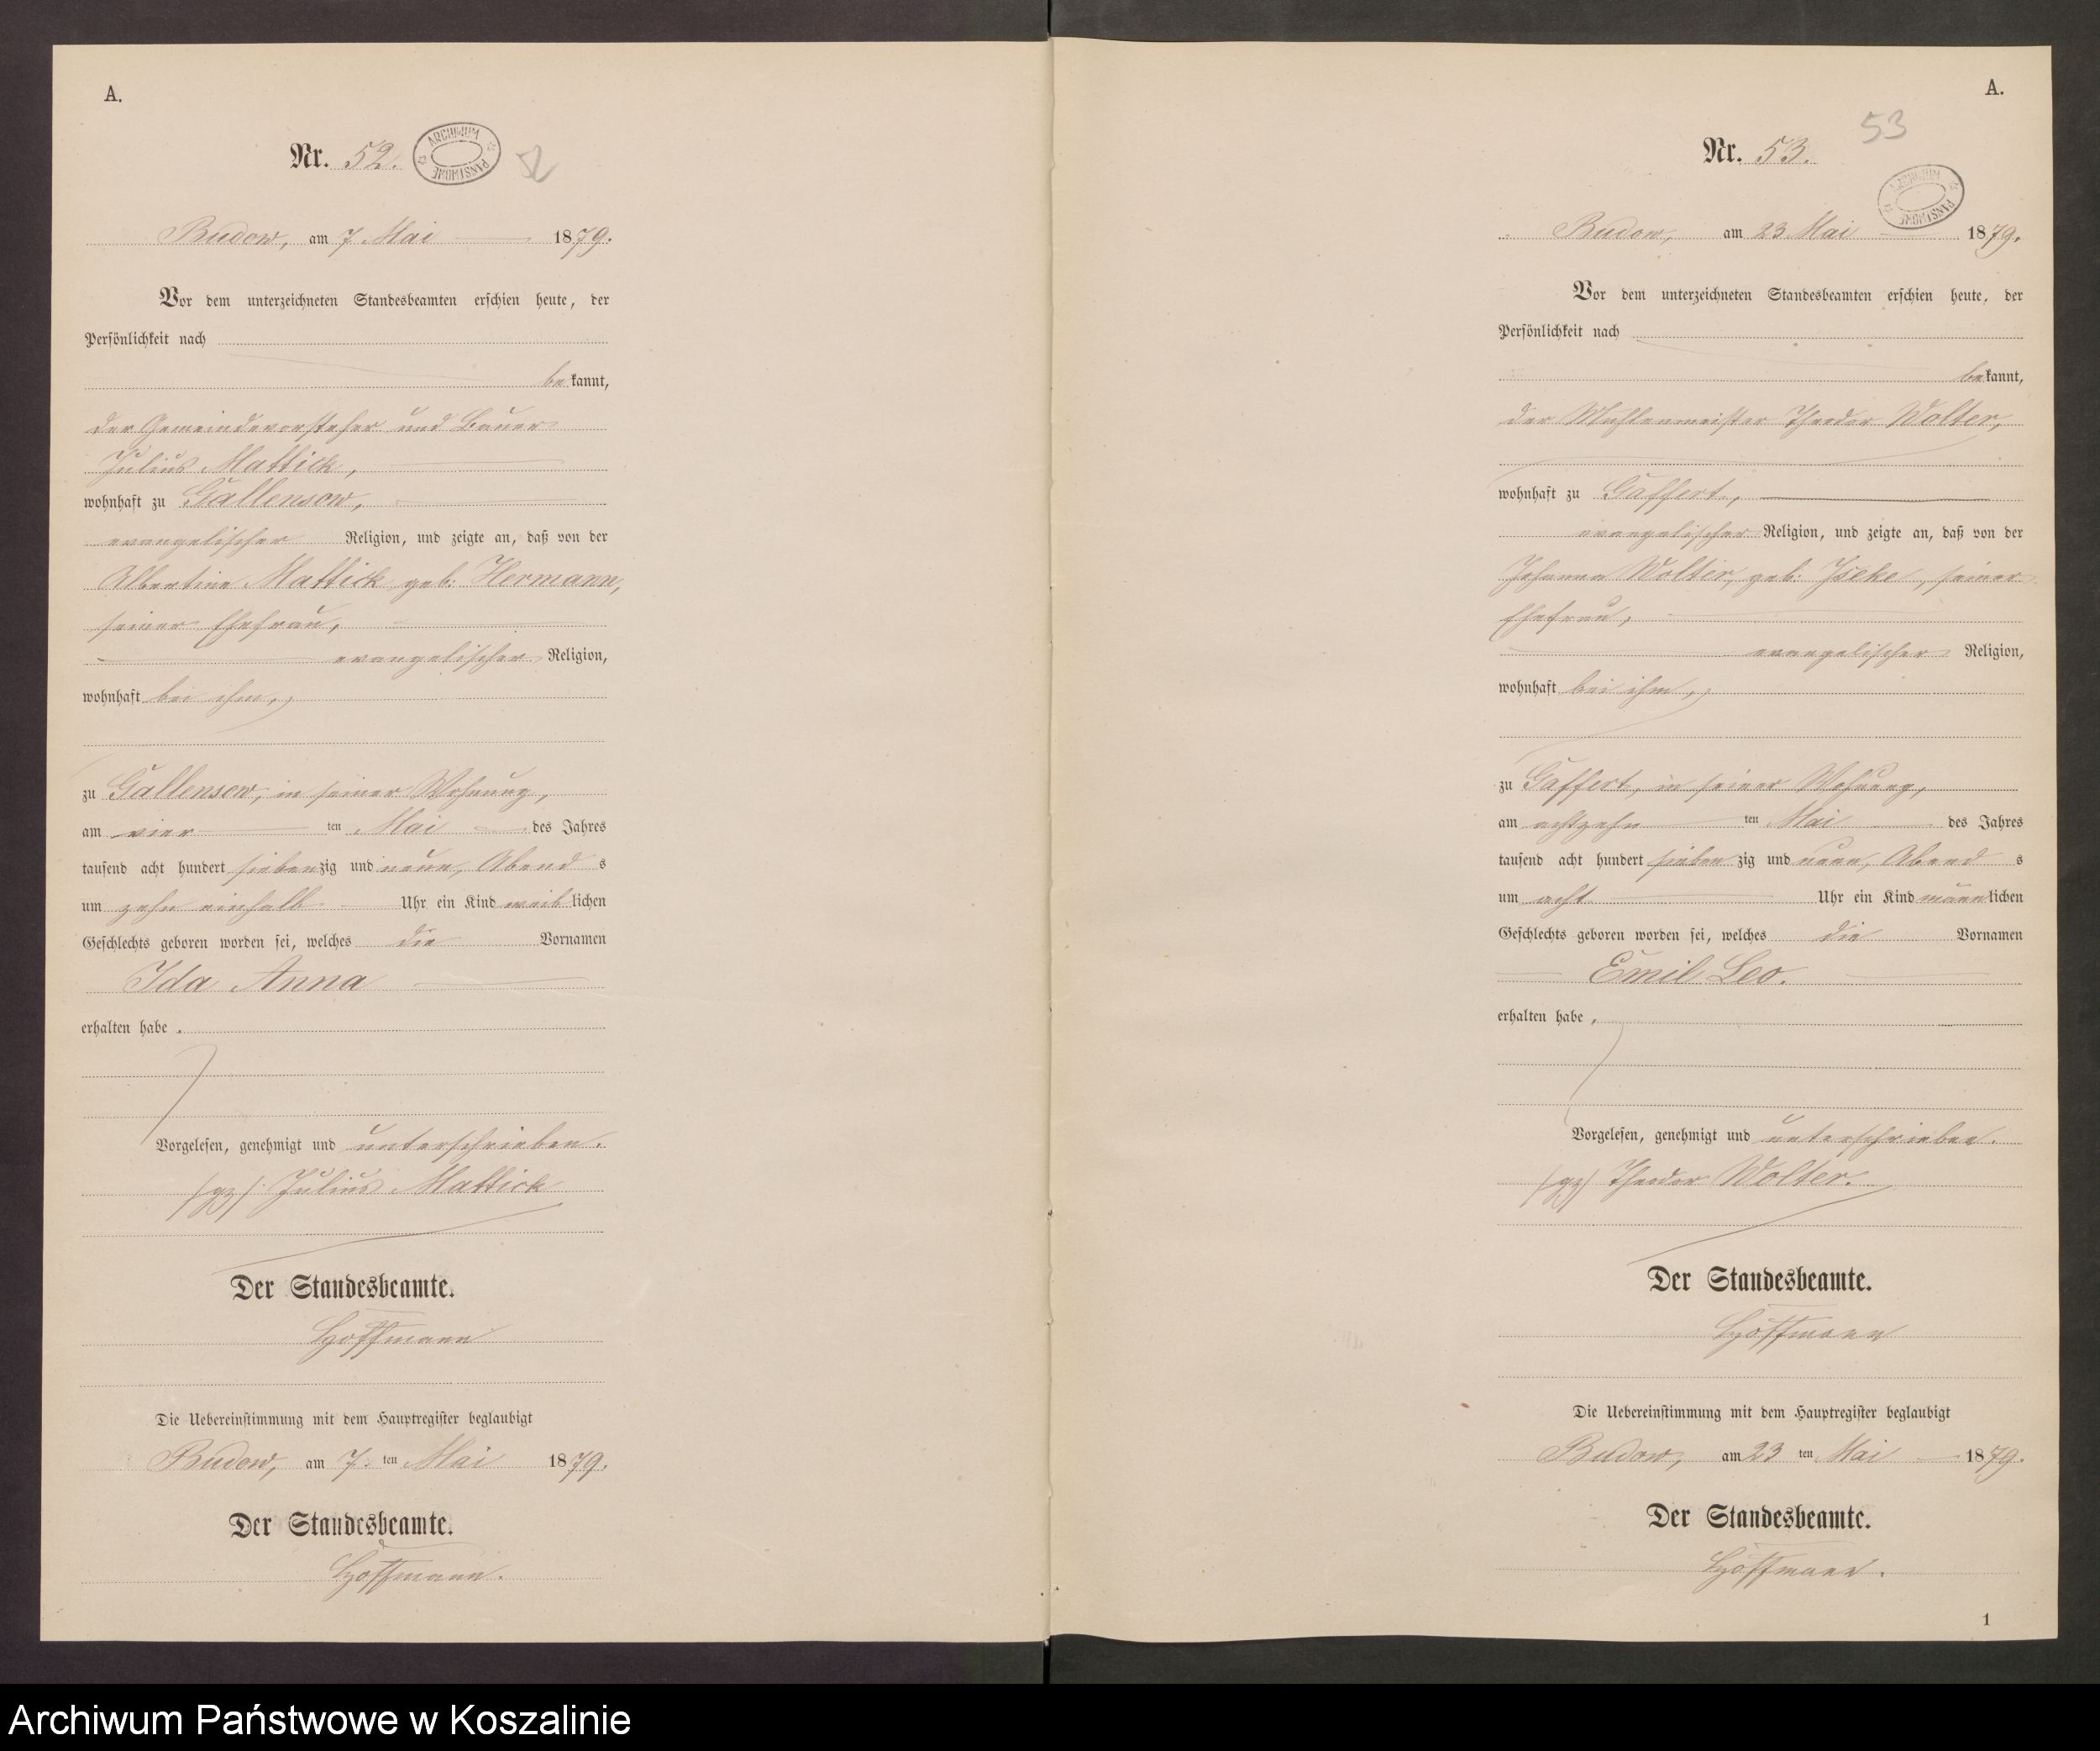 A.
Nr. 52.
ARCHIWUM PAŃSTWOWE
52
Budow, am 7 Mai 1879.
Vor dem unterzeichneten Standesbeamten erschien heute, der
Persönlichkeit nach
bekannt,
der Gemeindevorsteher und Bauer
Julius Mattick,
wohnhaft zu Gallensow,
evangelischer Religion, und zeigte an, daß von der
Albertine Mattick geb: Hermann,
seiner Ehefrau,
evangelischer Religion,
wohnhaft bei ihm,
zu Gallensow, in seiner Wohnung,
am vier ten Mai des Jahres
tausend acht hundert siebenzig und neun, Abend s
um zehn einhalb Uhr ein Kind weiblichen
Geschlechts geboren worden sei, welches die Vornamen
Ida Anna
erhalten habe.
Vorgelesen, genehmigt und unterschrieben.
/gz/: Julius Mattick
Der Standesbeamte.
Hoffmann
Die Uebereinstimmung mit dem Hauptregister beglaubigt
Budow, am 7. ten Mai 1879.
Der Standesbeamte.
Hoffmann.
A.
53
Nr. 53.
ARCHIWUM PAŃSTWOWE
Budow, am 23 Mai 1879.
Vor dem unterzeichneten Standesbeamten erschien heute, der
Persönlichkeit nach
bekannt,
der Mühlenmeister Theodor Wolter,
wohnhaft zu Gaffert,
evangelischer Religion, und zeigte an, daß von der
Johanna Wolter, geb: Iseke, seiner
Ehefrau,
evangelischer Religion,
wohnhaft bei ihm,
zu Gaffert, in seiner Wohnung,
am achtzehn ten Mai des Jahres
tausend acht hundert siebenzig und neun, Abend s
um acht Uhr ein Kind männlichen
Geschlechts geboren worden sei, welches die Vornamen
Emil Leo.
erhalten habe,
Vorgelesen, genehmigt und unterschrieben.
/gz/ Theodor Wolter.
Der Standesbeamte.
Hoffmann
Die Uebereinstimmung mit dem Hauptregister beglaubigt
Budow, am 23 ten Mai 1879.
Der Standesbeamte.
Hoffmann.
1
Archiwum Państwowe w Koszalinie